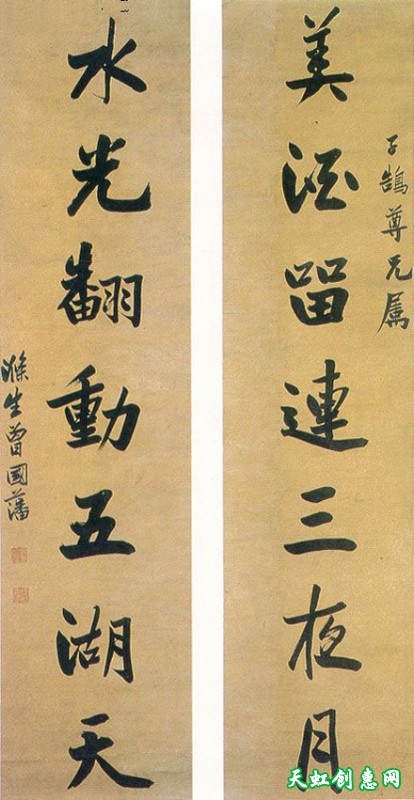 美酒留連三夜月
子鶴尊兄屬
水光翻動五湖天
滌生曾國藩
天虹创惠网